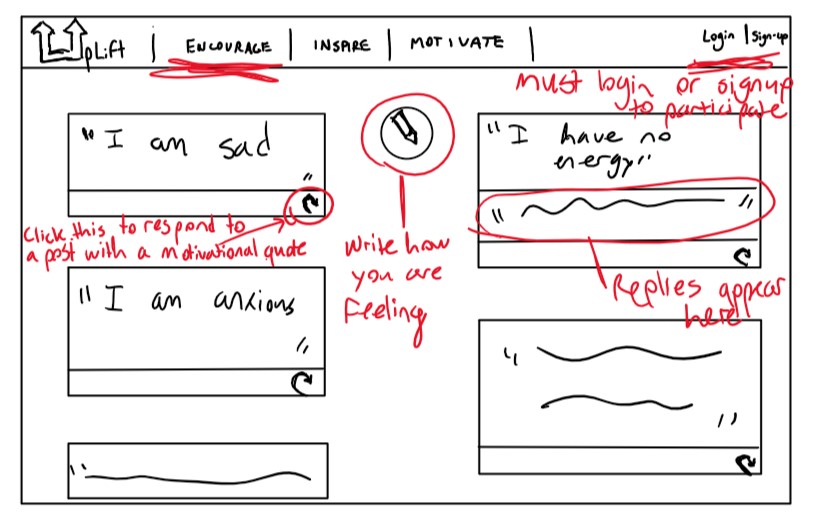 UpLift | ENCOURAGE | INSPIRE | MOTIVATE | Login | Sign-up
Must login or signup
to participate
" I am sad
"
Click this to respond to
a post with a motivational quote
Write how
you are
Feeling
" I have no
energy"
" "
Replies appear
here
" I am anxious
"
" "
"